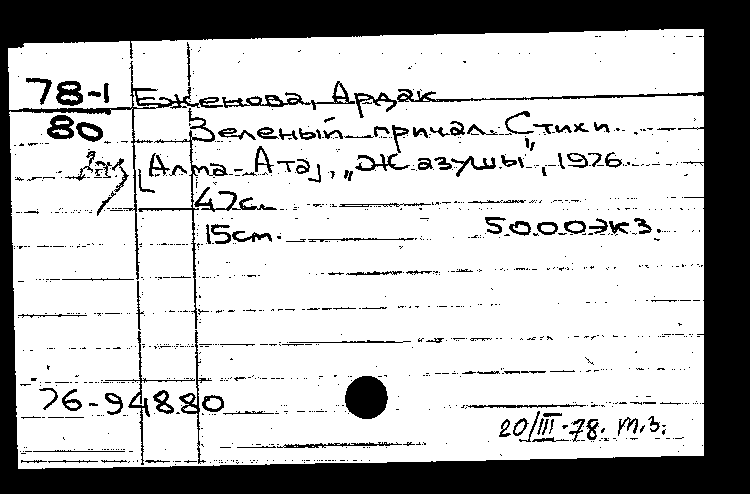 78-1 Еженова, Ардак
80 Зеленый причал. Стихи.
[Алма-Ата], „Жазушы", 1976.
47с.
15см. 5000экз.
76-94880
20/III-78. т.з.